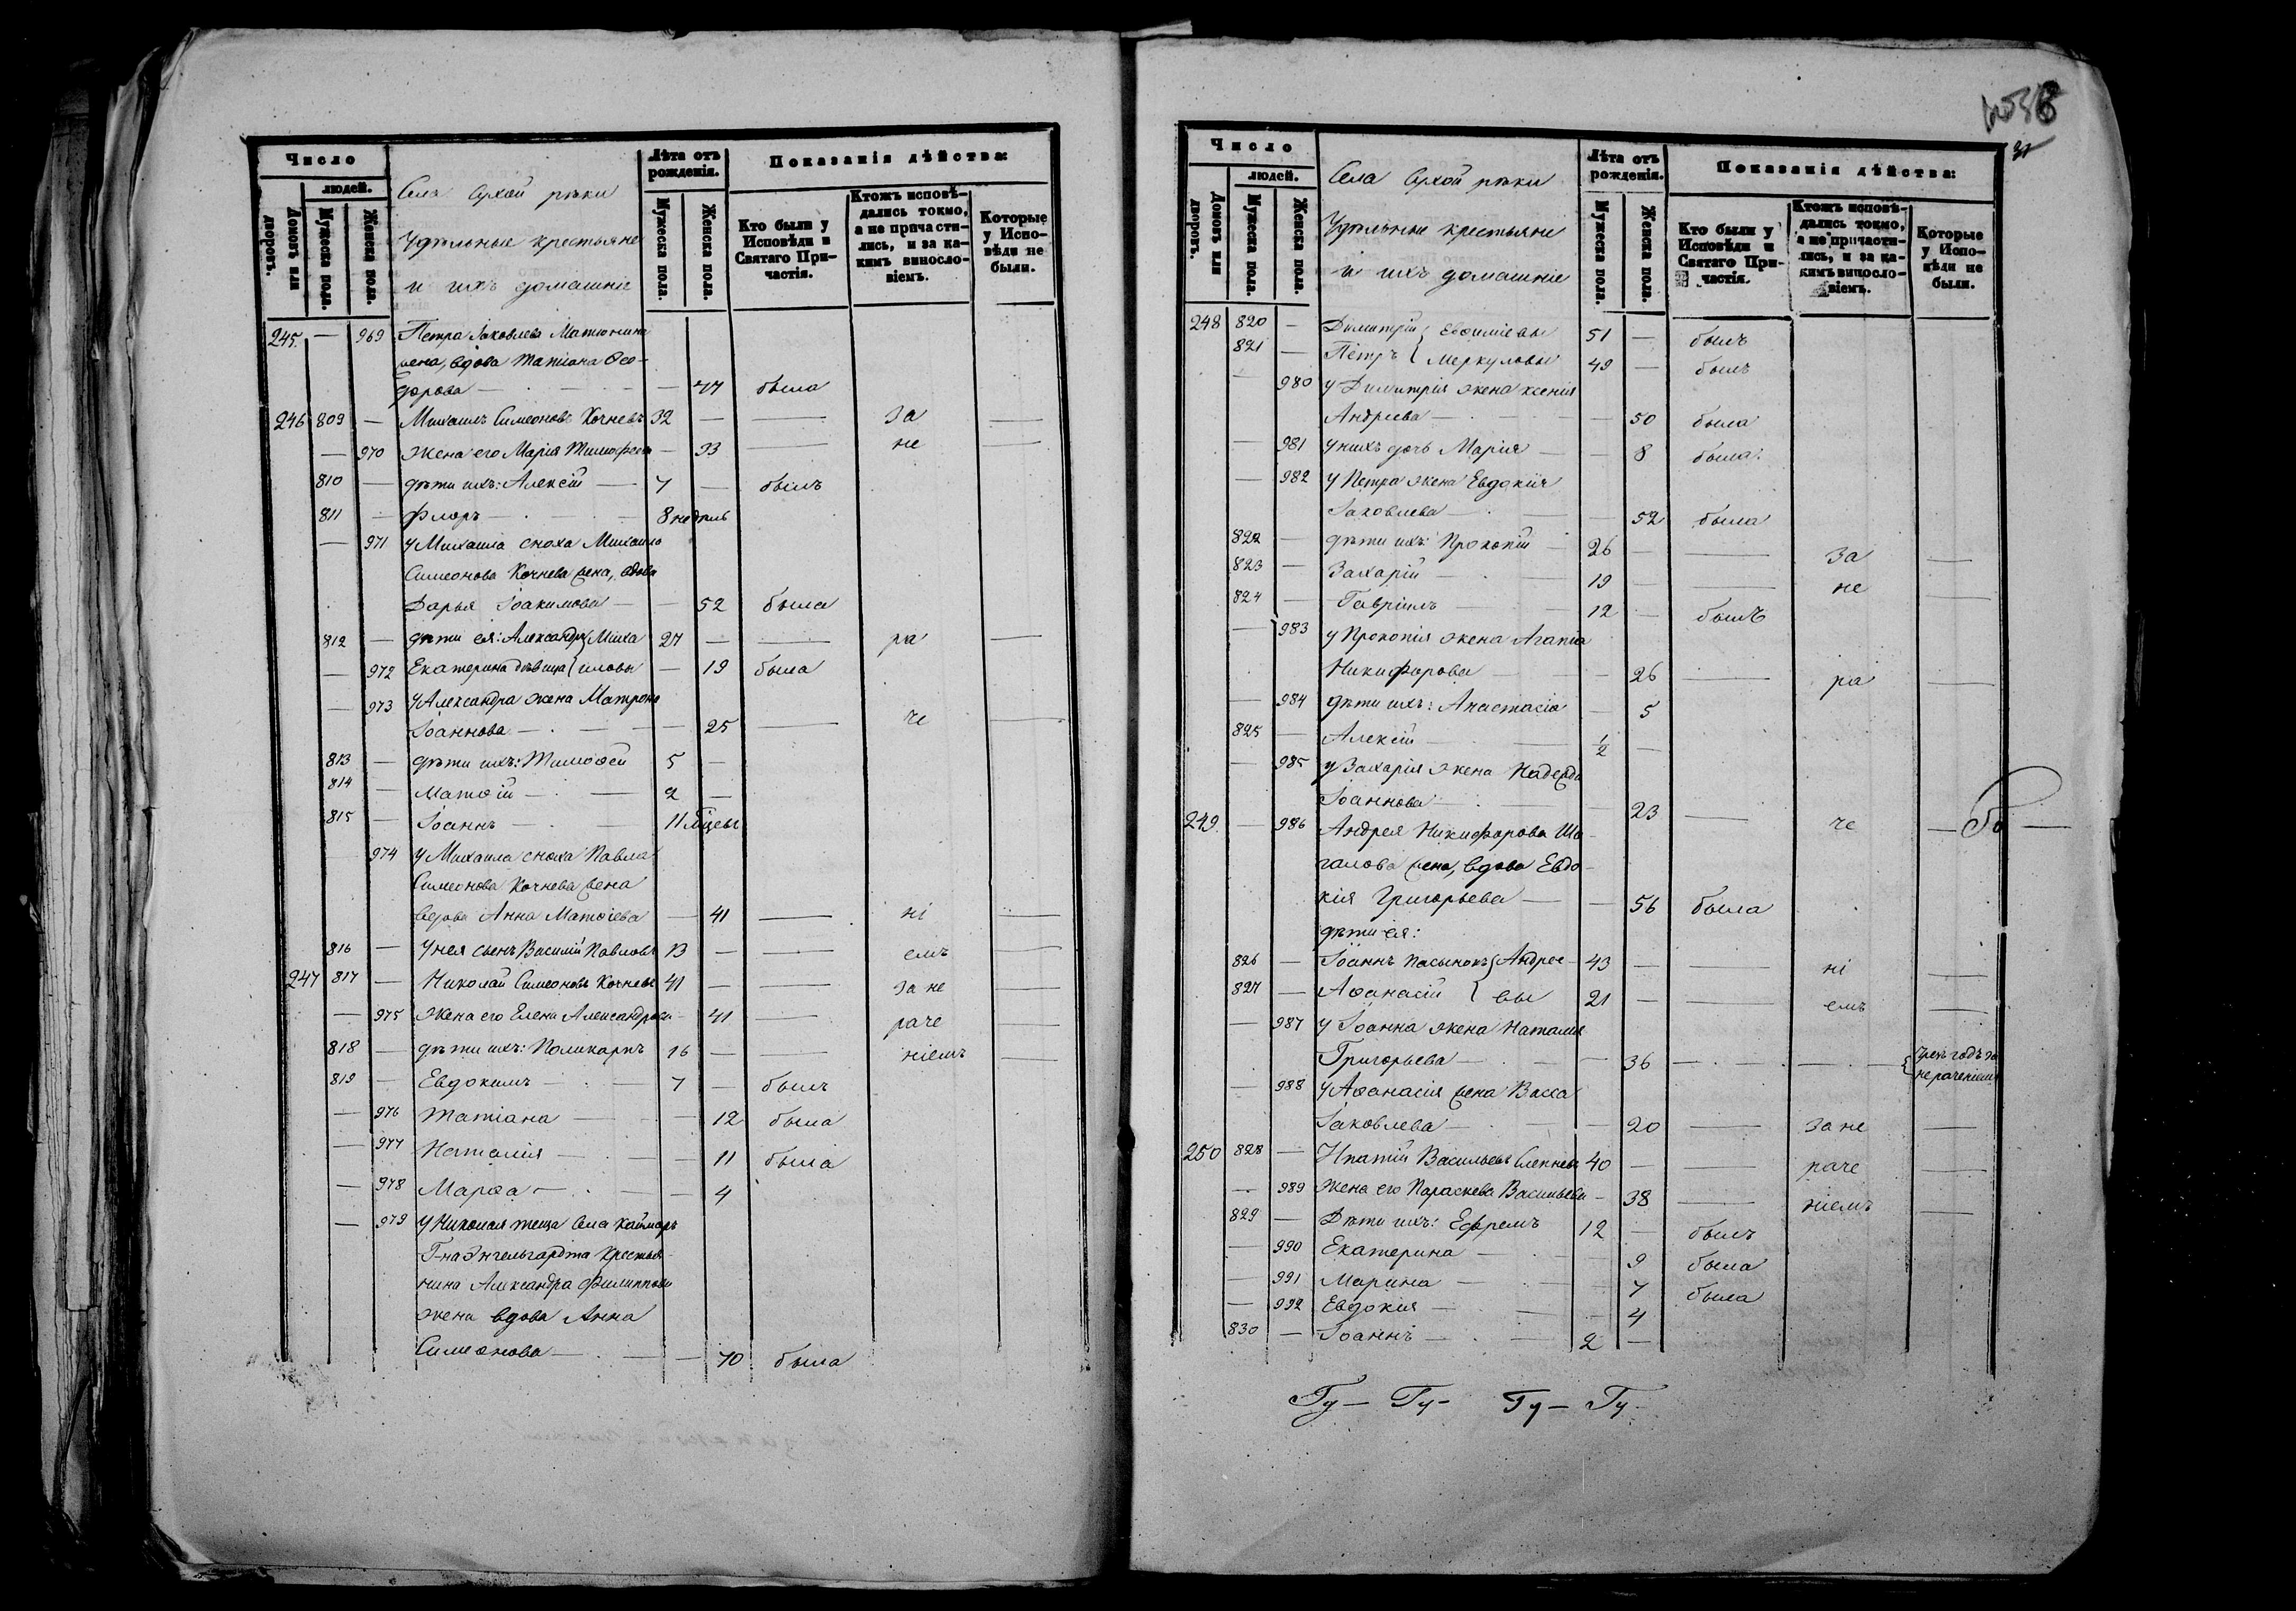 Число
Лѣта отъ рожденія.
Показанія дѣйства:
людей.
Домовъ или дворовъ.
Мужеска пола.
Женска пола.
Села Сухой рѣки
Удѣльные крестьяне
и ихъ домашніе
Мужеска пола.
Женска пола.
Кто были у Исповѣди и Святаго При-
частія.
Ктожъ исповѣ-
дались токмо,
а не причасти-
лись, и за ка-
кимъ винosло-
віемъ.
Которые
у Испо-
вѣди не
были.
245. — 969 Петра Іаковлева Матюнина
жена, вдова Татіана Ѳео-
дорова — — 77 была
246 809 — Михаилъ Симеоновъ Кочневъ 32 — — за —
— 970 жена его Марія Тимоѳеева — 33 — не —
810 — дѣти ихъ: Алексій — 7 — былъ
811 — Флоръ — 8 недѣль
— 971 У Михаила сноха Михаила
Симеонова Кочнева жена, вдова
Дарья Іоакимова — — 52 была
812 — дѣти ея: Александръ Миха 27 — — ра —
— 972 Екатерина дѣвица иловы — 19 была
— 973 У Александра жена Матрона
Іоаннова — — 25 — че —
813 — дѣти ихъ: Тимоѳей 5 —
814 — Матѳій — 2 —
815 — Іоаннъ — 11 мѣсяцевъ
974 У Михаила сноха Павла
Симеонова Кочнева жена
вдова Анна Матѳіева — 41 — ні —
816 — У нея сынъ Василій Павловъ 13 — — емъ —
247 817 — Николай Симеоновъ Кочневъ 41 — — за не —
— 975 жена его Елена Александрова — 41 — раче —
818 — дѣти ихъ: Поликарпъ 16 — — ніемъ —
819 — Евдокимъ — 7 — былъ
— 976 Татіана — — 12 была
— 977 Наталія — — 11 была
— 978 Марѳа — — 4
— 979 У Николая теща села Каймаръ
Г-на Энгельгардта крестья-
нина Александра Филиппова
жена вдова Анна
Симеонова — — 70 была
Число
Лѣта отъ рожденія.
Показанія дѣйства:
людей.
Домовъ или дворовъ.
Мужеска пола.
Женска пола.
Села Сухой рѣки
Удѣльные крестьяне
и ихъ домашніе
Мужеска пола.
Женска пола.
Кто были у
Исповѣди и
Святаго При-
частія.
Ктожъ исповѣ-
дались токмо,
а не причасти-
лись, и за ка-
кимъ винosло-
віемъ.
Которые
у Испо-
вѣди не
были.
248 820 — Димитрій Евѳиміевы 51 — былъ
821 — Петръ Меркуловы 49 — былъ
— 980 У Димитрія жена Ксенія
Андреева — — 50 была
— 981 У нихъ дочь Марія — — 8 была
— 982 У Петра жена Евдокія
Іаковлева — — 52 была
822 — дѣти ихъ: Прокопій — 26 — — за —
823 — Захарій — 19 — — не —
824 — Гавріилъ — 12 — былъ
— 983 у Прокопія жена Агапія
Никифорова — — 26 — ра —
— 984 дѣти ихъ: Анастасія — 5
825 — Алексій — 1/2 —
— 985 у Захарія жена Надежда
Іоаннова — — 23 — че —
249. — 986 Андрея Никифорова Ша-
галова жена, вдова Евдо-
кія Григорьева — — 56 была
дѣти ея:
826 — Іоаннъ пасынокъ Андрее- 43 — — ні —
827 — Аѳанасій вы 21 — — емъ —
— 987 У Іоанна жена Наталія
Григорьева — — 36 — — годъ за
нераченіемъ
— 988 У Аѳанасія жена Васса
Іаковлева — — 20 — за не —
250 828 — Ипатій Васильевъ Слепневъ 40 — — раче —
— 989 Жена его Параскева Васильева — 38 — ніемъ —
829 — Дѣти ихъ: Ефремъ 12 — былъ
— 990 Екатерина — — 9 была
— 991 Марина — — 7 была
— 992 Евдокія — — 4
830 — Іоаннъ — 2 —
Гу — Гу — Гу — Гу